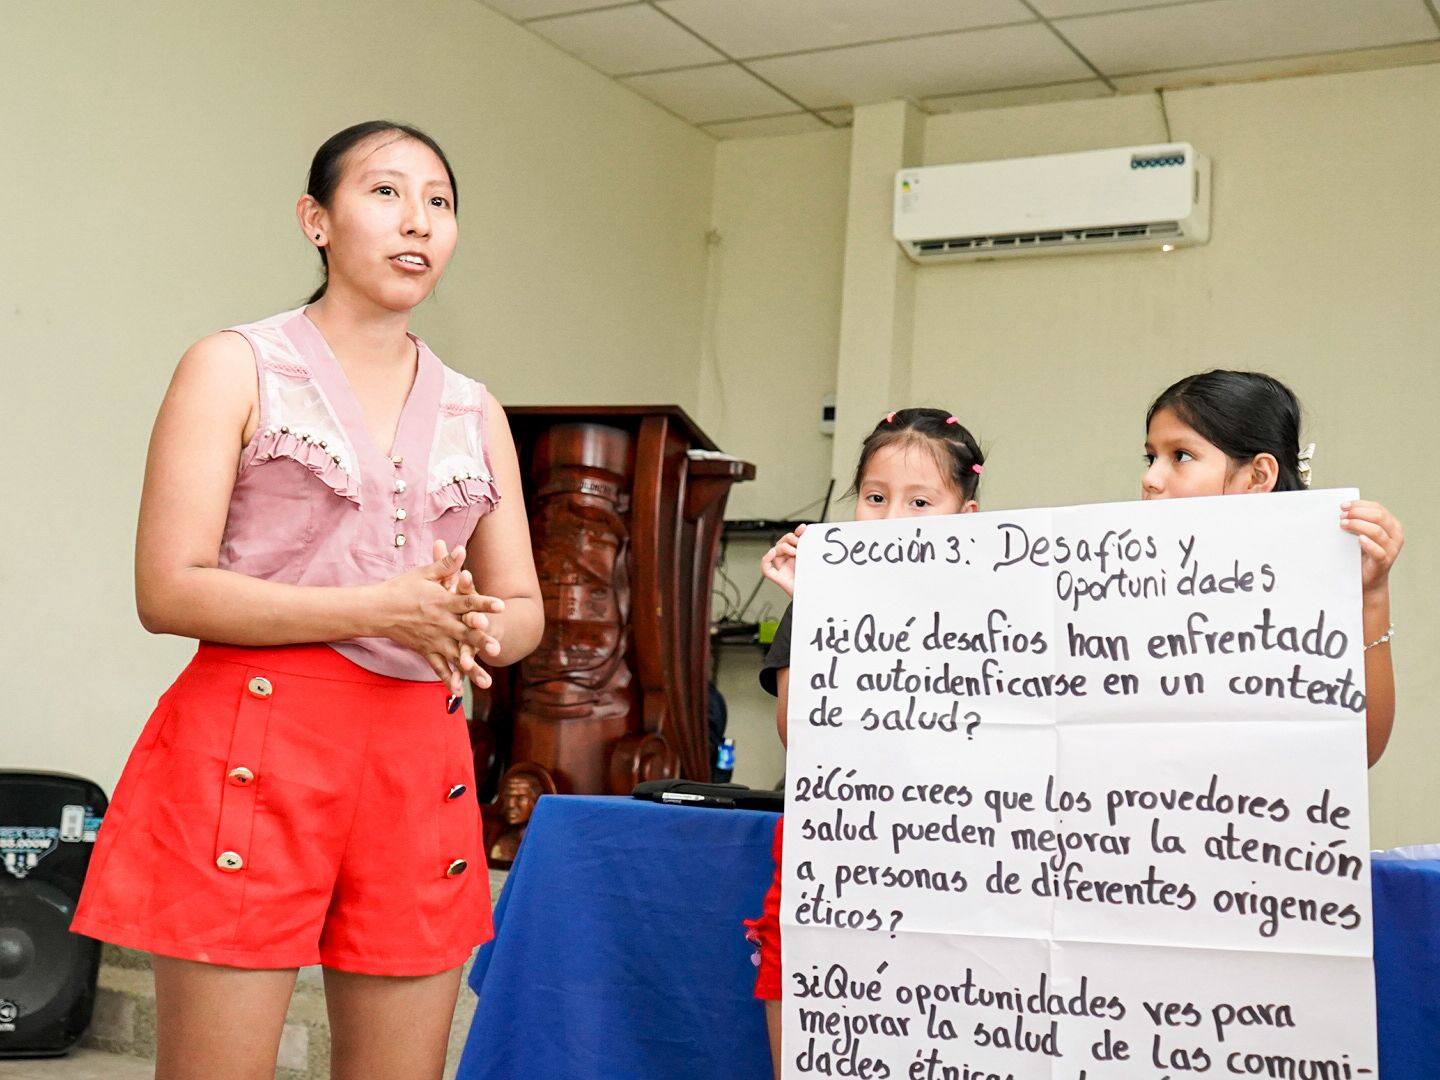 Sección 3: Desafíos y
Oportunidades
1¿¿Qué desafios han enfrentado
al autoidenficarse en un contexto
de salud?
2¿Cómo crees que los provedores de
salud pueden mejorar la atención
a personas de diferentes origenes
éticos?
3¿Qué oportunidades ves para
mejorar la salud de las comuni-
dades étnicas